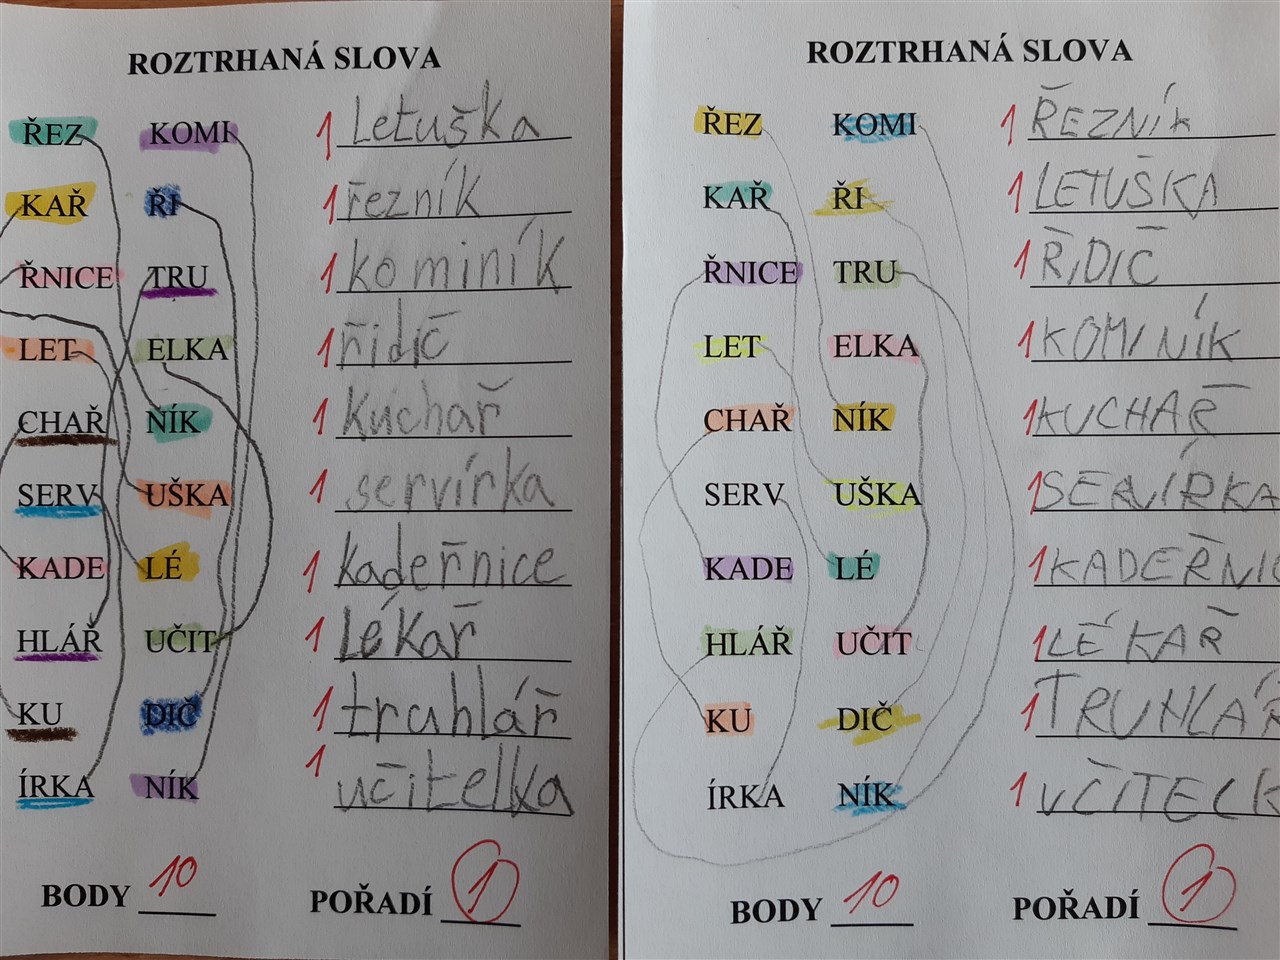 ROZTRHANÁ SLOVA
ŘEZ KOMI 1 Letuška
KAŘ ŘI 1 řezník
ŘNICE TRU 1 kominík
LET ELKA 1 řidič
CHAŘ NÍK 1 Kuchař
SERV UŠKA 1 servírka
KADE LÉ 1 kadeřnice
HLÁŘ UČIT 1 Lékař
KU DIČ 1 truhlář
ÍRKA NÍK 1 učitelka
BODY 10 POŘADÍ 1
ROZTRHANÁ SLOVA
ŘEZ KOMI 1 ŘEZNÍK
KAŘ ŘI 1 LETUŠKA
ŘNICE TRU 1 ŘIDIČ
LET ELKA 1 KOMINÍK
CHAŘ NÍK 1 KUCHAŘ
SERV UŠKA 1 SERVÍRKA
KADE LÉ 1 KADEŘNIC
HLÁŘ UČIT 1 LÉKAŘ
KU DIČ 1 TRUHLÁŘ
ÍRKA NÍK 1 UČITELK
BODY 10 POŘADÍ 1